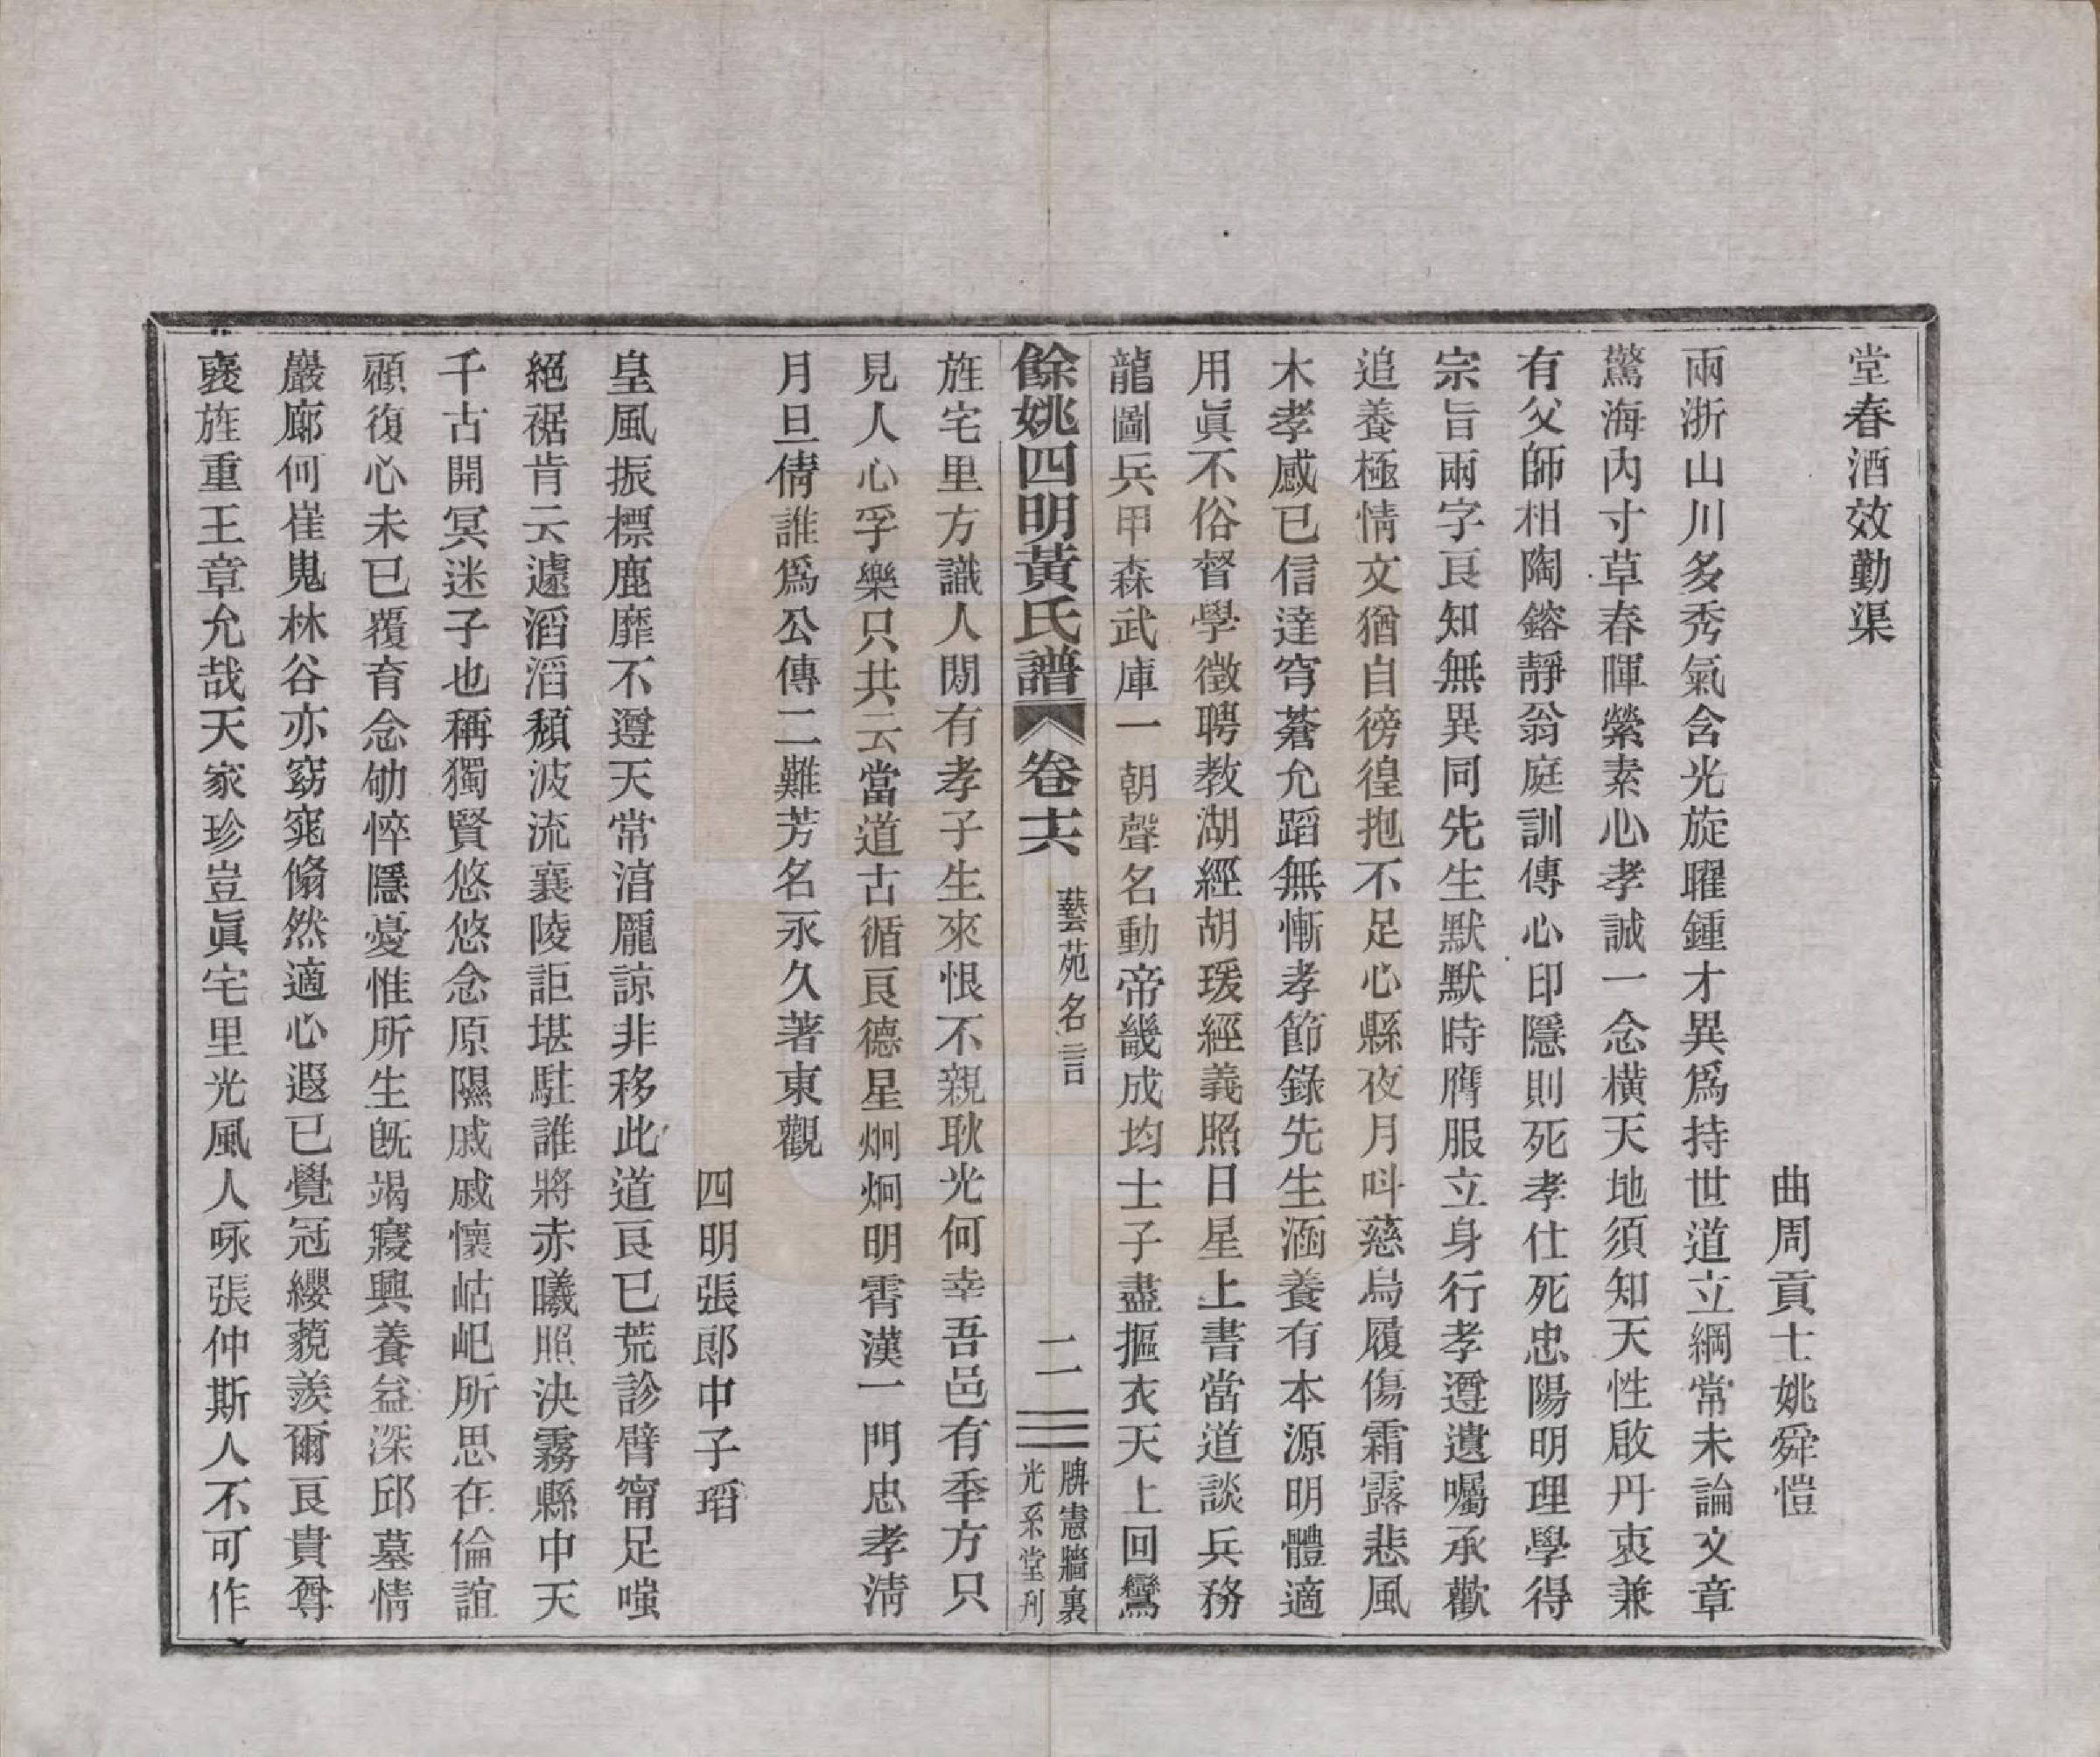 堂春酒效勤渠
曲周貢士姚舜愷
兩浙山川多秀氣含光旋曜鍾才異爲持世道立綱常未論文章
驚海內寸草春暉縈素心孝誠一念橫天地須知天性啟丹衷兼
有父師相陶鎔靜翁庭訓傳心印隱則死孝仕死忠陽明理學得
宗旨兩字良知無異同先生默默時膺服立身行孝遵遺囑承歡
追養極情文猶自徬徨抱不足心縣夜月呌慈烏履傷霜露悲風
木孝感已信達穹蒼允蹈無慚孝節錄先生涵養有本源明體適
用眞不俗督學徵聘教湖經胡瑗經義照日星上書當道談兵務
龍圖兵甲森武庫一朝聲名動帝畿成均士子盡摳衣天上回鸞
餘姚四明黃氏譜 卷十六 藝苑名言 二 牌憲牆裏 光系堂刊
旌宅里方識人閒有孝子生來恨不親耿光何幸吾邑有季方只
見人心孚樂只共云當道古循良德星炯炯明霄漢一門忠孝淸
月旦倩誰爲公傳二難芳名永久著東觀
四明張郎中子瑫
皇風振標鹿靡不遵天常淯龎諒非移此道良已荒診臂甯足嗤
絕裾肯云遽滔滔頽波流襄陵詎堪駐誰將赤曦照決霧縣中天
千古開冥迷子也稱獨賢悠悠念原隰戚戚懷岵屺所思在倫誼
顧復心未已覆育念劬悴隱憂惟所生旣竭寢興養益深邱墓情
巖廊何崔嵬林谷亦窈窕翛然適心遐已覺冠纓藐羨爾良貴尊
襃旌重王章允哉天家珍豈眞宅里光風人咏張仲斯人不可作